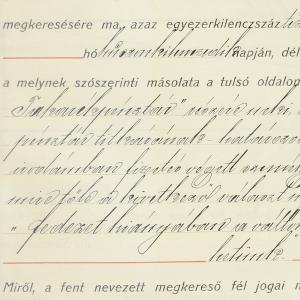 megkeresésére ma, azaz egyezerkilenczszáz
hó huszonkilenczedik napján, dél
a melynek szószerinti másolata a tulsó oldalon
"Takarékpénztár"
pénztár titkárának határozo
irodámban fizetés végett
mire tőle a következő választ
"fedezet hiányjában a
letünk
Miről, a fent nevezett megkereső fél jogai